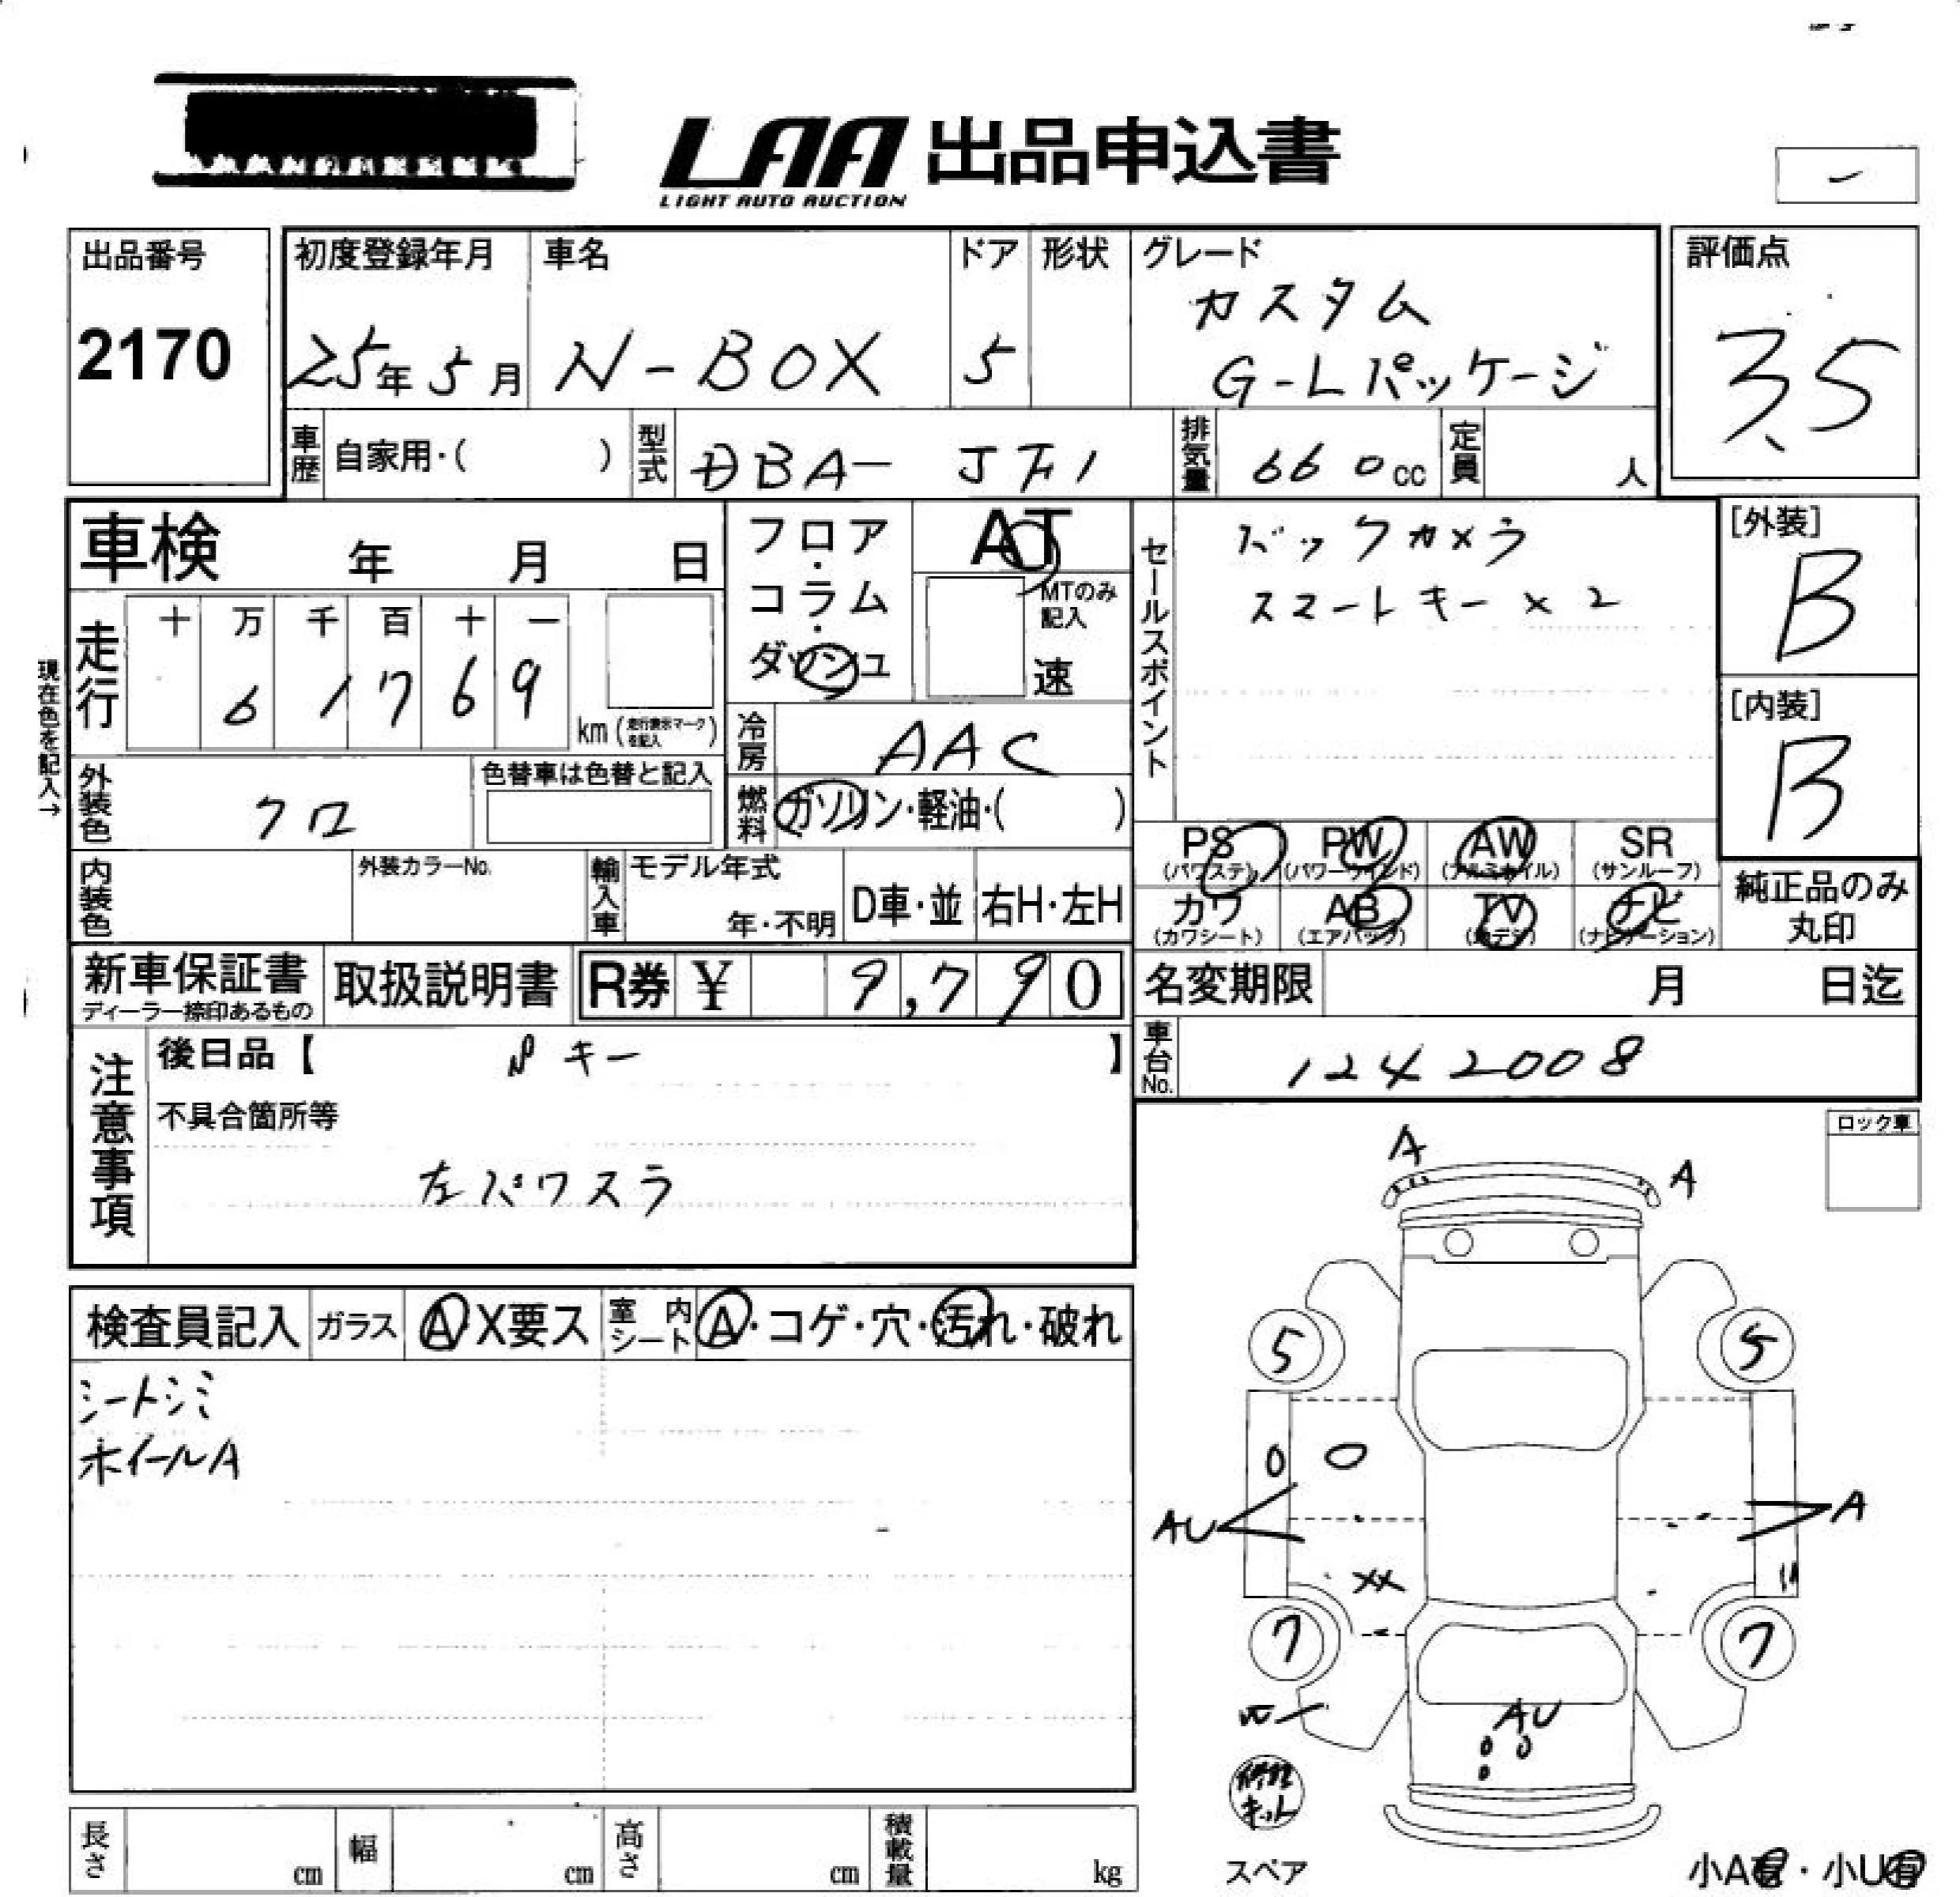 LAA 出品申込書
LIGHT AUTO AUCTION
出品番号
2170
初度登録年月
25年5月
車名
N-BOX
ドア
5
形状
グレード
カスタム
G-Lパッケージ
評価点
3.5
車歴
自家用・( )
型式
DBA- JF1
排気量
660cc
定員
人
車検 年 月 日
フロア・コラム・ダッシュ
AT
MTのみ記入
速
セールスポイント
バックカメラ
スマートキー×2
[外装]
B
[内装]
B
現在色を記入→
走行
十 万 千 百 十 一
6 1 7 6 9
km (走行表示マークを記入)
冷房
AAC
外装色
クロ
色替車は色替と記入
燃料
ガソリン・軽油・( )
PS (パワステ)
PW (パワーウインド)
AW (アルミホイル)
SR (サンルーフ)
カワ (カワシート)
AB (エアバック)
TV (地デジ)
ナビ (ナビゲーション)
純正品のみ丸印
内装色
外装カラーNo.
輸入車
モデル年式
年・不明
D車・並
右H・左H
新車保証書
ディーラー捺印あるもの
取扱説明書
R券 ¥ 9,790
名変期限 月 日迄
車台No.
1242008
注意事項
後日品【 キー 】
不具合箇所等
左パワスラ
ロック車
検査員記入
ガラス
A X要ス
室内シート
A・コゲ・穴・汚れ・破れ
シートシミ
ホイールA
A
A
5
5
AU
A
XX
7
7
AU
修理キット
スペア
小A有・小U有
長さ cm
幅 cm
高さ cm
積載量 kg